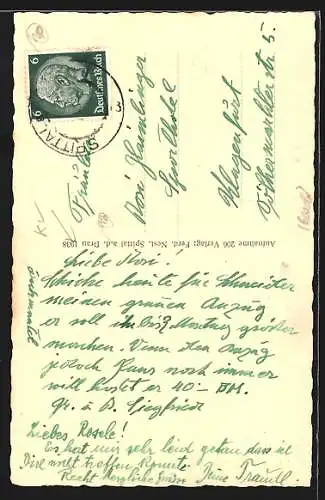 6
6
Deutsches Reich
SPITTAL
Fräulein
Rosi
Sporthotel
Klagenfurt
Völkermarkter str 5.
Aufnahme 206 Verlag: Ferd. Nest, Spittal a.d. Drau 1938
Liebe Rosi!
Schicke heute für Schneider
meinen grauen Anzug
er soll ihn bis Montag größer
machen. Wenn den Anzug
jedoch Hans noch immer
will kostet er 40.- RM.
Gr. u. B. Siegfried
Liebes Roserl!
Es hat mir sehr leid getan dass ich
Dich nicht treffen konnte.
Recht herzliche Grüsse Deine Trautl.